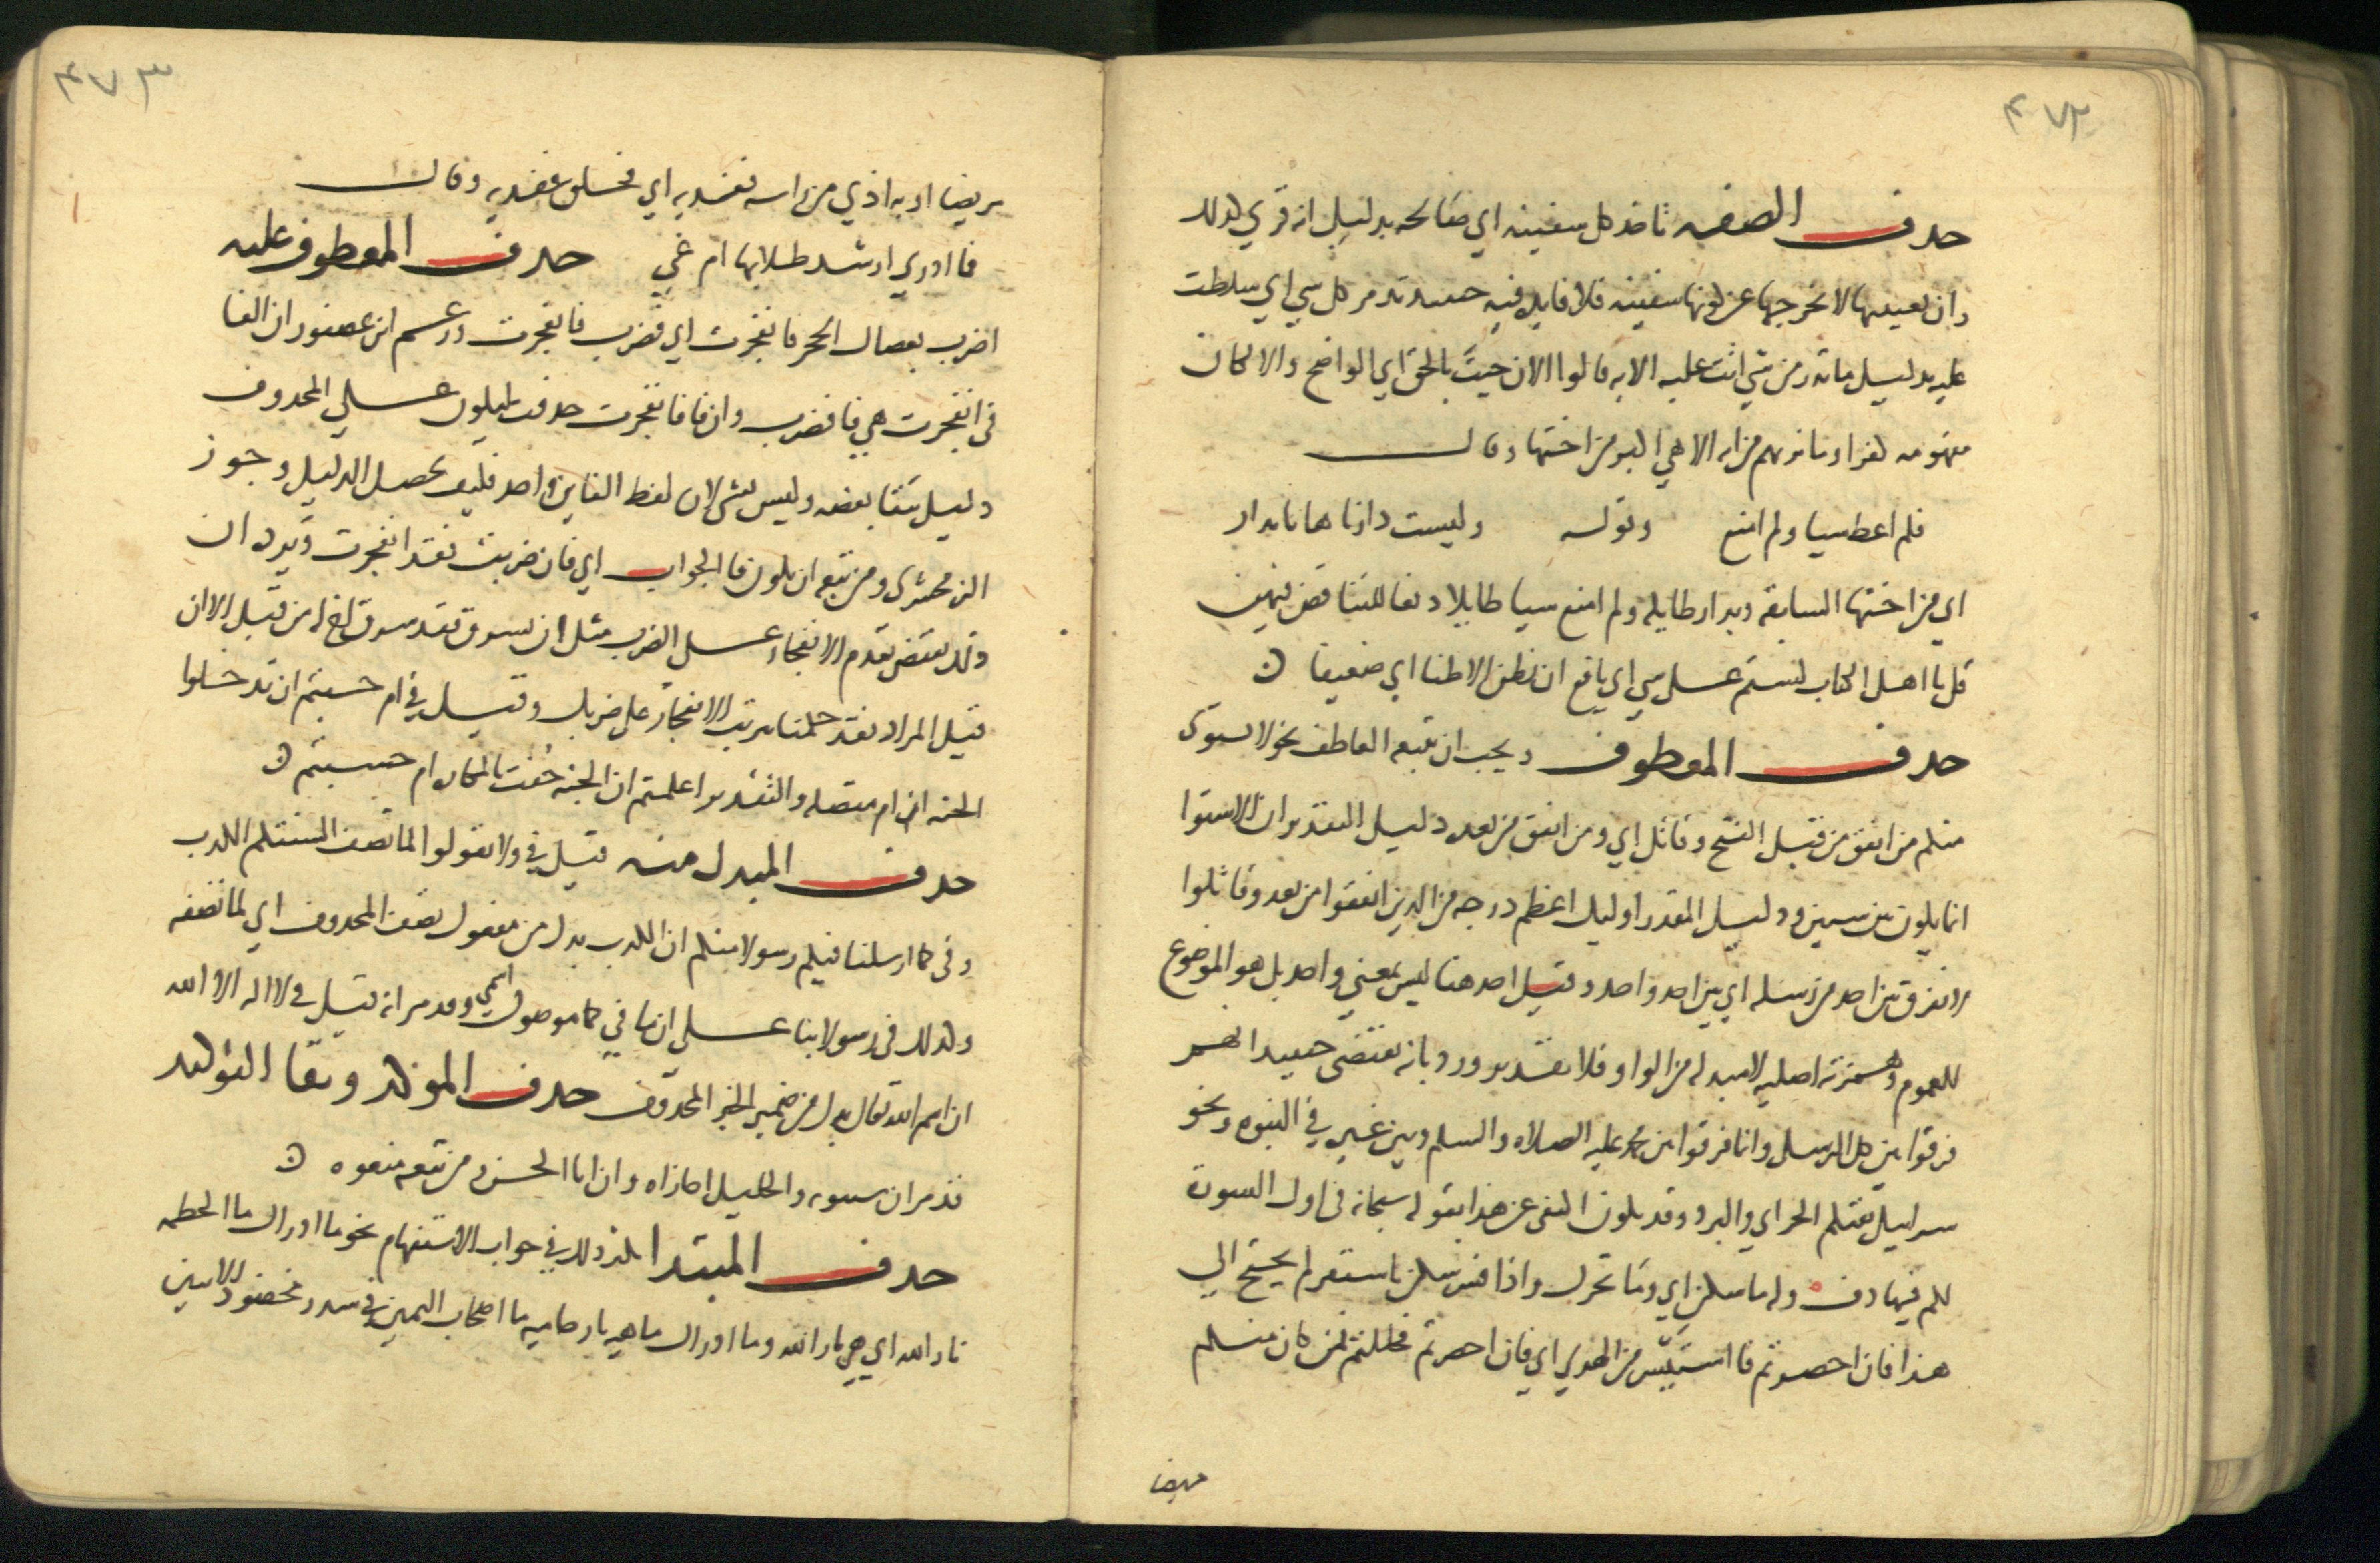 ٤٧٢
حذف الصفه ياخذ كل سفينه اي صالحه بدليل انه قري كذلك
وان تعييبها لا يخرجها عن كونها سفينه فلا فايده فيه حينئذ تدمر كل شي اي سلطت
عليه بدليل ما تذر من شي اتت عليه الايه قالوا الان جيت بالحق اي الواضح والا لكان
مفهومه كفرا وما نريهم من ايه الا هي اكبر من اختها وقال
فلم اعط شيا ولم امنع وقوله وليست دارنا هاتا بدار
اي من اختها السابقه وبدار طايله ولم امنع شيا طايلا دفعا للتناقض فيهن
قل يا اهل الكتاب لستم على شي اي نافع ان نظن الا ظنا اي ضعيفا
حذف المعطوف ويجب ان يتبعه العاطف نحو لا يستوي
منكم من انفق من قبل الفتح وقاتل اي ومن انفق من بعده دليل التقدير ان الاستوا
انما يكون بين شيين ودليل المقدر اوليك اعظم درجه من الذين انفقوا من بعد وقاتلوا
لا نفرق بين احد من رسله اي بين احد واحد وقيل احد هنا ليس بمعني واحد بل هو الموضوع
للعموم وهمزته اصليه لا مبدله من الواو فلا تقدير ورد بانه يقتضي حينيذ انهم
فرقوا بين كل الرسل وانما فرقوا بين محمد عليه الصلاه والسلم وبين غيره في النبوه ونحو
سرابيل تقيكم الحر اي والبرد وقد يكون اكتفي عن هذا بقوله سبحانه في اول السورة
لكم فيها دفء وله ما سكن اي وما تحرك واذا فسر سكن باستقر لم يحتج الي
هذا فان احصرتم فما استيسر من الهدي اي فان احصرتم فحللتم فمن كان منكم
مريضا
٤٧٣
مريضا او به اذي من راسه ففديه اي فحلق ففديه وقال
فما ادري ارشد طلابها ام غي حذف المعطوف عليه
اضرب بعصاك الحجر فانفجرت اي فضرب فانفجرت وزعم ابن عصفور ان الفا
في انفجرت هي فا فضرب وان فا فانفجرت حذفت ليكون على المحذوف
دليل ببقا بعضه وليس بشي لان لفظ الفاين واحد فكيف يحصل الدليل وجوز
الزمخشري ومن تبعه ان يكون فا الجواب اي فان ضربت فقد انفجرت ويرده ان
ذلك يقتضي تقدم الانفجار على الضرب مثل ان يسرق فقد سرق اخ له من قبل الا ان
قيل المراد فقد حكمنا بترتب الانفجار على ضربك وقيل في ام حسبتم ان تدخلوا
الجنه ان ام متصله والتقدير اعلمتم ان الجنه حفت بالمكاره ام حسبتم
حذف المبدل منه قيل في ولا تقولوا لما تصف السنتكم الكذب
وفي كما ارسلنا فيكم رسولا منكم ان الكذب بدل من مفعول تصف المحذوف اي لما تصفه
وكذلك في رسولا بنا علي ان ما في كما موصول اسمي وقد مر انه قيل في لا اله الا الله
ان اسم الله تعالي بدل من ضمير الخبر المحذوف حذف الموكد وبقا التوكيد
قد مر ان سيبويه والخليل اجازاه وان ابا الحسن ومن تبعه منعوه
حذف المبتدا يكثر ذلك في جواب الاستفهام نحو ما ادراك ما الحطمه
نار الله اي هي نار الله وما ادراك ما هيه نار حاميه ما اصحاب اليمين في سدر مخضود الايتين